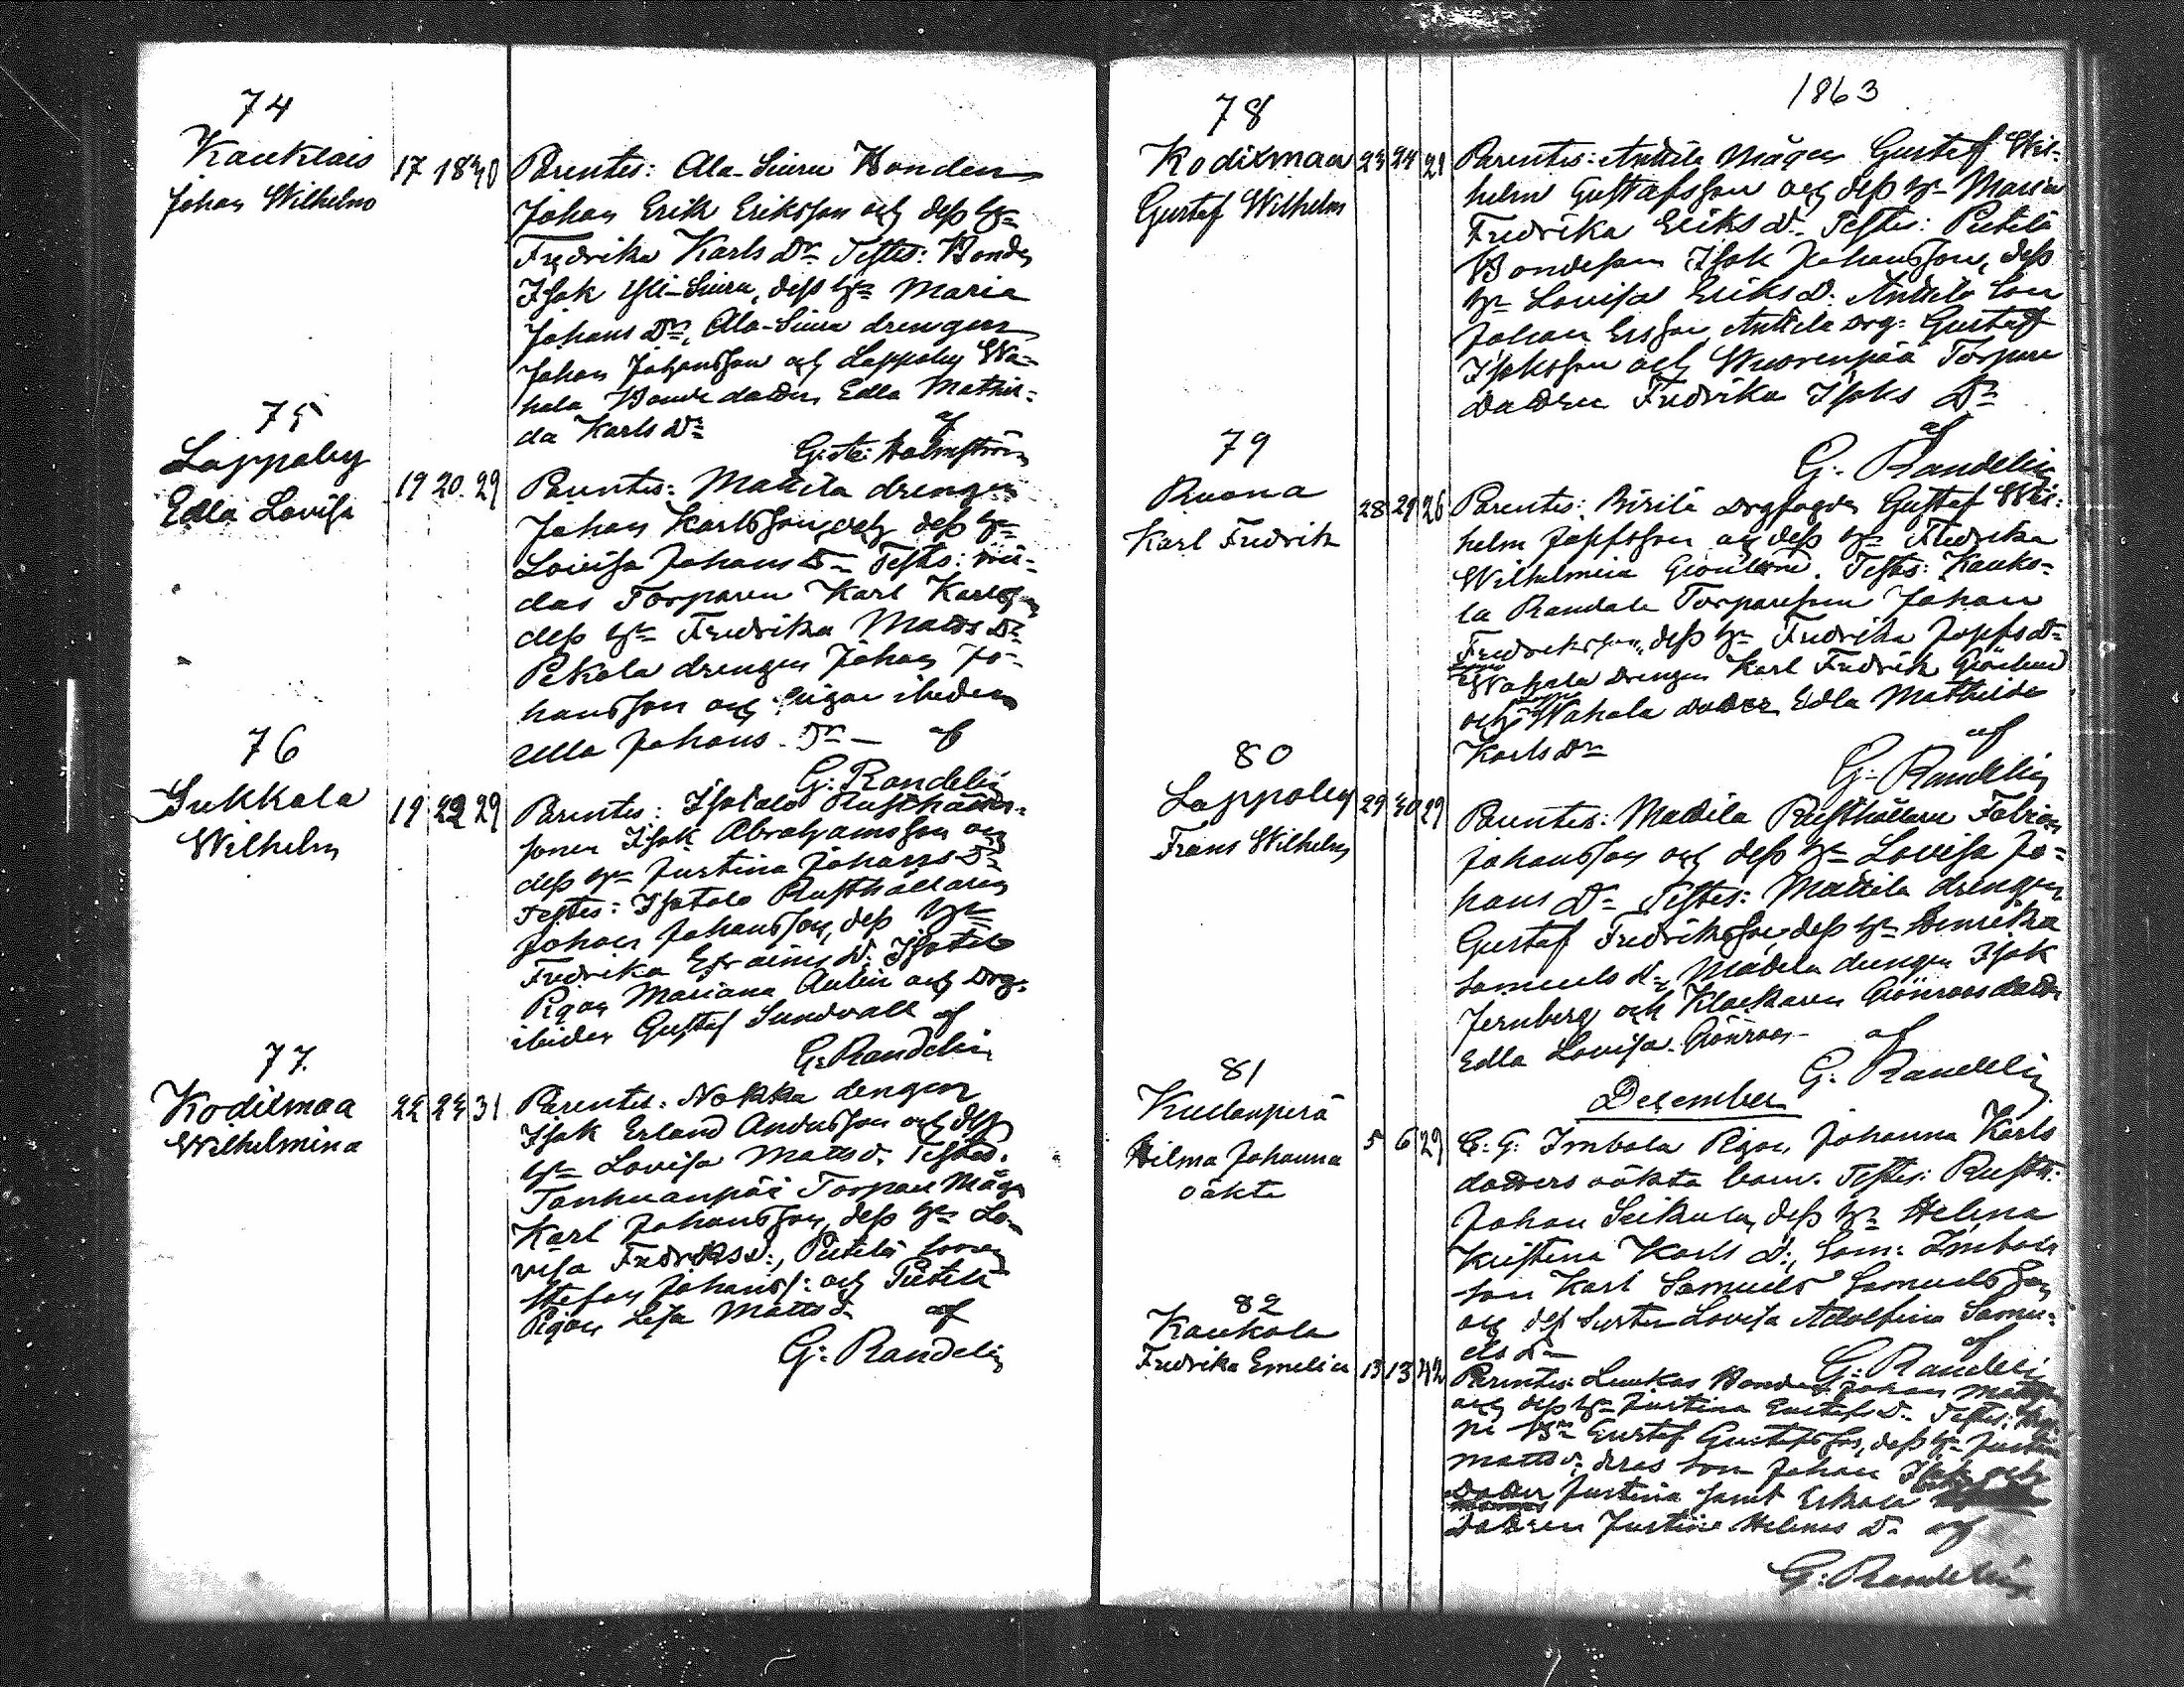 74
Kauklais
Johan Wilhelm
17 18 40
Parentes: Ala-Siuru Bonden
Johan Erik Eriksson och dess H:
Fredrika Karls Dr Testes: Bonden
Isak Yli-Siuru, dess H: Maria
Johans Dr, Ala-Siuru drengen
Johan Johansson och Lappoby Wa-
hala Bonde dottren Edla Mathil-
da Karls Dr
af
G: A: Holmström
75
Lappoby
Edla Lovisa
19 20 29
Parentes: Mattila drengen
Johan Karlsson och dess H:
Lovisa Johans D. Testes:
Torparen Karl Karlsson
dess H: Fredrika Matts Dr
Pekola drengen Johan Jo-
hansson och Pigan ibidem
Ulla Johans Dr — af
G: Randelin
76
Sukkala
Wilhelm
19 22 29
Parentes: Isotalo Rusthållar-
sonen Isak Abrahamsson och
dess H: Justina Johans D.
Testes: Isotalo Rusthållaren
Johan Johansson, dess H:
Fredrika Efraims D. Isotalo
Pigan Mariana Aulin och Drg:
ibidem Gustaf Sundvall af
G: Randelin
77.
Kodixmaa
Wilhelmina
22 24 31
Parentes: Nokka dengen
Isak Erland Andersson och dess
H: Lovisa Matts d. Testes.
Tanhuanpää Torpare Mågen
Karl Johansson, dess H: Lo-
visa Fredriks d:, Pietilä sonen
Stefan Johanss: och Pietilä
Pigan Lisa Matts d. af
G: Randelin
1863
78
Kodixmaa
Gustaf Wilhelm
23 24 29
Parentes: Anttila Mågen Gustaf Wil-
helm Gustafsson och dess H: Maria
Fredrika Eriks D. Testes: Pietilä
Bondeson Isak Johansson, dess
H: Lovisa Eriks D. Anttila Son
Johan Ersson Anttila Drg: Gustaf
Isaksson och Wuorenpää Torpare
Dottren Fredrika Isaks Dr
af
G: Randelin
79
Ruona
Karl Fredrik
28 29 26
Parentes: Birilä Drgfogden Gustaf Wil-
helm Josefsson och dess H: Fredrika
Wilhelmina Grönlund. Testes: Kauko-
la Randala Torpareson Johan
Fredriksson, dess H: Fredrika Josefs D.
Wahala Drengen Karl Fredrik Grönlund
och Wahala Dotter Edla Mathilda
Karls Dr
af
G: Randelin
80
Lappoby
Frans Wilhelm
29 30 29
Parentes: Mattila Rusthållare Fabian
Johansson och dess H: Lovisa Jo-
hans D. Testes: Mattila drengen
Gustaf Fredriksson, dess H: Henrika
Samuels D, Mattila drengen Isak
Jernberg och Klockaren Grönroos dotter
Edla Lovisa Grönroos — af
G: Randelin
December
81
Kullanperä
Hilma Johanna
oäkta
5 6 29
E. G: Imbola Pigan Johanna Karls
dotters oäkta barn. Testes: Rusth:
Johan Seikula, dess H: Helena
Kristina Karls D:, Som: Imbola
son Karl Samuel Samuelsson
och dess Syster Lovisa Adolfina Samu-
els D.
af
G: Randelin
82
Kaukola
Fredrika Emelia
13 13 42
Parentes: Luukas Bonden Johan Mattsson
och dess H: Justina Gustafs D. Testes:
Gustaf Gustafsson, dess H: Justina
Matts d, deras son Johan Isak och
Dotter Justina samt Eskola
Dottren Justina Helenes D. af
G: Randelin